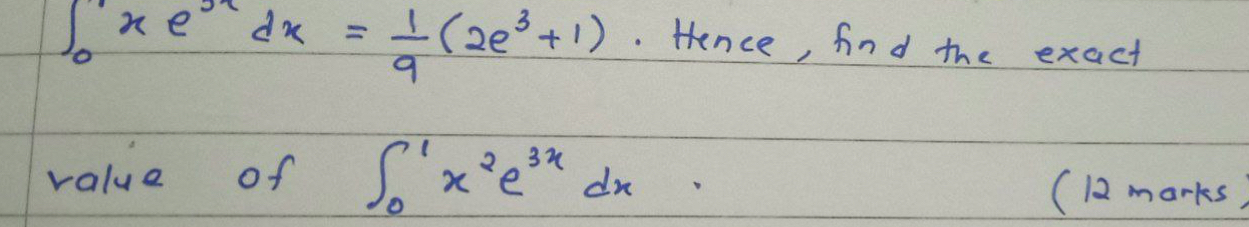 ∫₀¹ x e³ˣ dx = 1/9 (2e³ + 1). Hence, find the exact
value of ∫₀¹ x² e³ˣ dx. (12 marks)